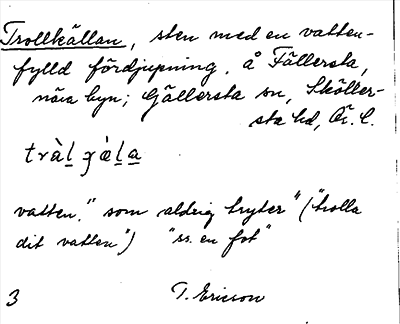 Trollkällan, sten med en vatten-
fylld fördjupning, å Fällersta,
nära byn; Gällersta sn, Sköller-
sta hd, Ör. l.
vatten." som aldrig tryter" ("trolla
dit vatten") "ss. en fot"
3 T. Ericson